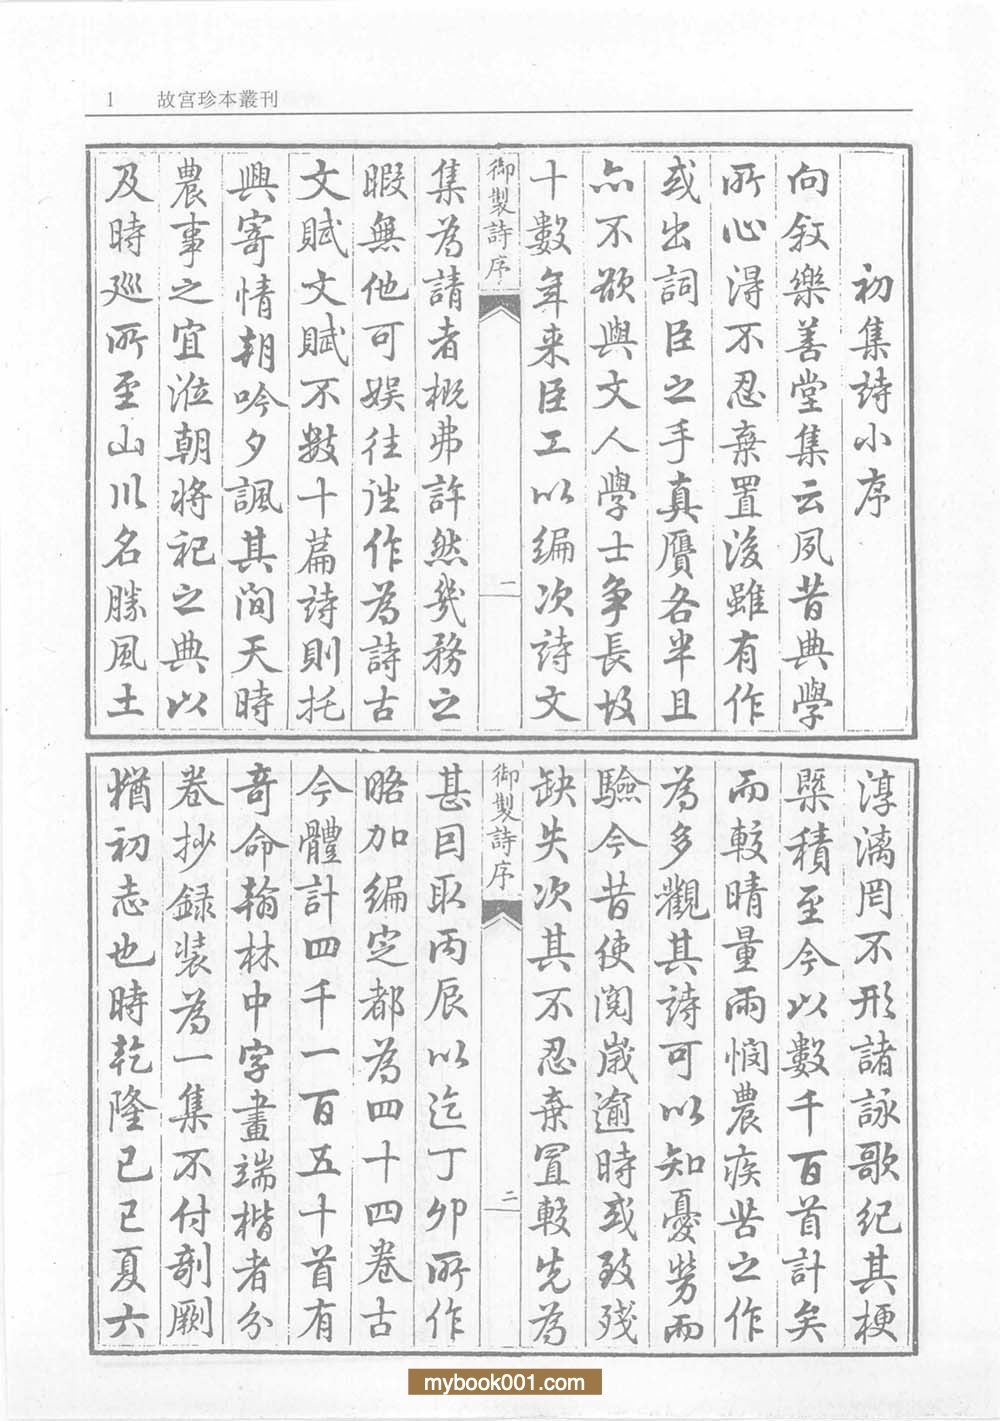 1 故宫珍本叢刊
初集詩小序
向敘樂善堂集云夙昔典學
所心得不忍棄置後雖有作
或出詞臣之手真贋各半且
亦不欲與文人學士爭長故
十數年来臣工以編次詩文
御製詩序 一
集為請者概弗許然幾務之
暇無他可娱往往作為詩古
文賦文賦不數十篇詩則托
興寄情朝吟夕諷其間天時
農事之宜涖朝將祀之典以
及時廵所至山川名勝風土
淳漓罔不形諸詠歌紀其梗
槩積至今以數千百首計矣
而較晴量雨憫農疾苦之作
為多觀其詩可以知憂勞而
驗今昔使閲嵗逾時或致殘
缺失次其不忍棄置較先為
御製詩序 二
甚因取丙辰以迄丁卯所作
略加編定都為四十四卷古
今體計四千一百五十首有
竒命翰林中字畫端楷者分
卷抄録装為一集不付剞劂
猶初志也時乾隆己巳夏六
mybook001.com